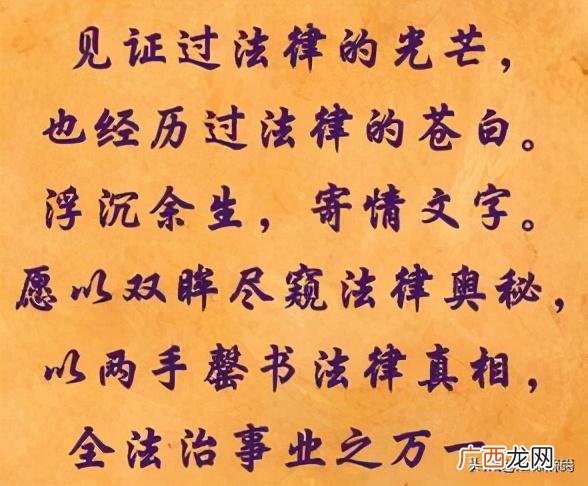 见证过法律的光芒，
也经历过法律的苍白。
浮沉余生，寄情文字。
愿以双眸尽窥法律奥秘，
以两手罄书法律真相，
全法治事业之万一
广西龙网